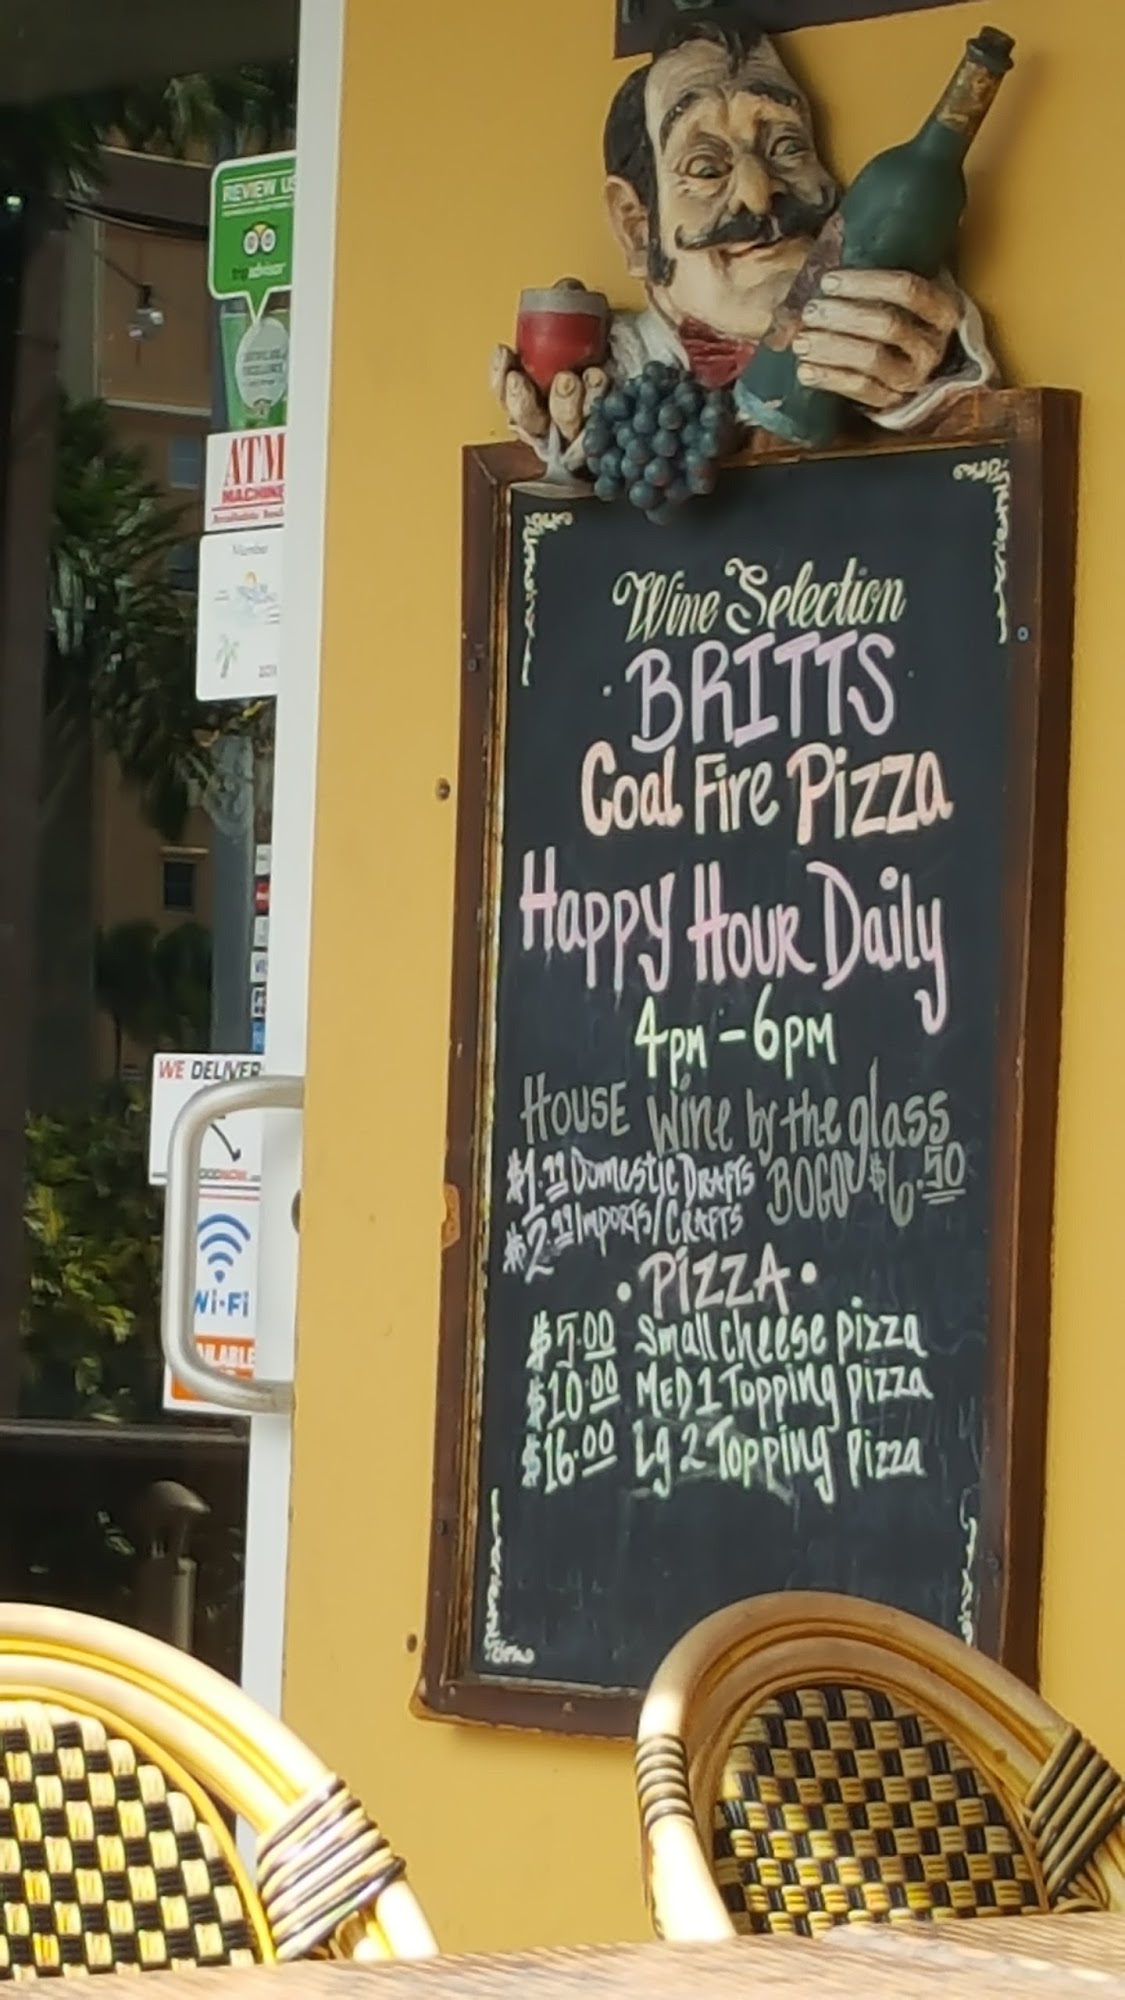 REVIEW US
tripadvisor
ATM
MACHINE
Member
WE DELIVER
Wi-Fi
Wine Selection
BRITTS
Coal Fire Pizza
Happy Hour Daily
4pm - 6PM
House Wine by the glass
BOGO $6.50
$1.99 Domestic Drafts
$2.99 Imports/Crafts
• Pizza •
$5.00 Small cheese pizza
$10.00 MED 1 Topping pizza
$16.00 Lg 2 Topping Pizza